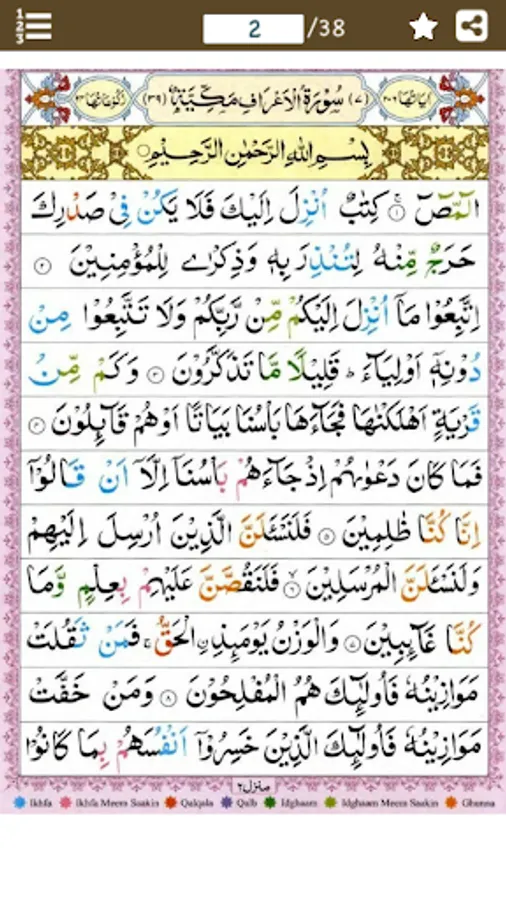 2 /38
اٰیَاتُهَا ۲۰۶ (۷) سُوْرَةُ الْاَعْرَافِ مَكِّیَّةٌ (۳۹) رُكُوْعَاتُهَا ۲۴
بِسْمِ اللّٰهِ الرَّحْمٰنِ الرَّحِیْمِ
الٓمّٓصٓ ۚ۱ كِتٰبٌ اُنْزِلَ اِلَیْكَ فَلَا یَكُنْ فِیْ صَدْرِكَ
حَرَجٌ مِّنْهُ لِتُنْذِرَ بِهٖ وَذِكْرٰی لِلْمُؤْمِنِیْنَ ۲
اِتَّبِعُوْا مَاۤ اُنْزِلَ اِلَیْكُمْ مِّنْ رَّبِّكُمْ وَلَا تَتَّبِعُوْا مِنْ
دُوْنِهٖۤ اَوْلِیَآءَ ؕ قَلِیْلًا مَّا تَذَكَّرُوْنَ ۳ وَكَمْ مِّنْ
قَرْیَةٍ اَهْلَكْنٰهَا فَجَآءَهَا بَاْسُنَا بَیَاتًا اَوْ هُمْ قَآىِٕلُوْنَ ۴
فَمَا كَانَ دَعْوٰىهُمْ اِذْ جَآءَهُمْ بَاْسُنَاۤ اِلَّاۤ اَنْ قَالُوْۤا
اِنَّا كُنَّا ظٰلِمِیْنَ ۵ فَلَنَسْـَٔلَنَّ الَّذِیْنَ اُرْسِلَ اِلَیْهِمْ
وَلَنَسْـَٔلَنَّ الْمُرْسَلِیْنَ ۙ۶ فَلَنَقُصَّنَّ عَلَیْهِمْ بِعِلْمٍ وَّمَا
كُنَّا غَآىِٕبِیْنَ ۷ وَالْوَزْنُ یَوْمَىِٕذِ ࣙالْحَقُّ ۚ فَمَنْ ثَقُلَتْ
مَوَازِیْنُهٗ فَاُولٰٓىِٕكَ هُمُ الْمُفْلِحُوْنَ ۸ وَمَنْ خَفَّتْ
مَوَازِیْنُهٗ فَاُولٰٓىِٕكَ الَّذِیْنَ خَسِرُوْۤا اَنْفُسَهُمْ بِمَا كَانُوْا
منزل ۲
Ikhfa Ikhfa Meem Saakin Qalqala Qalb Idghaam Idghaam Meem Saakin Ghunna